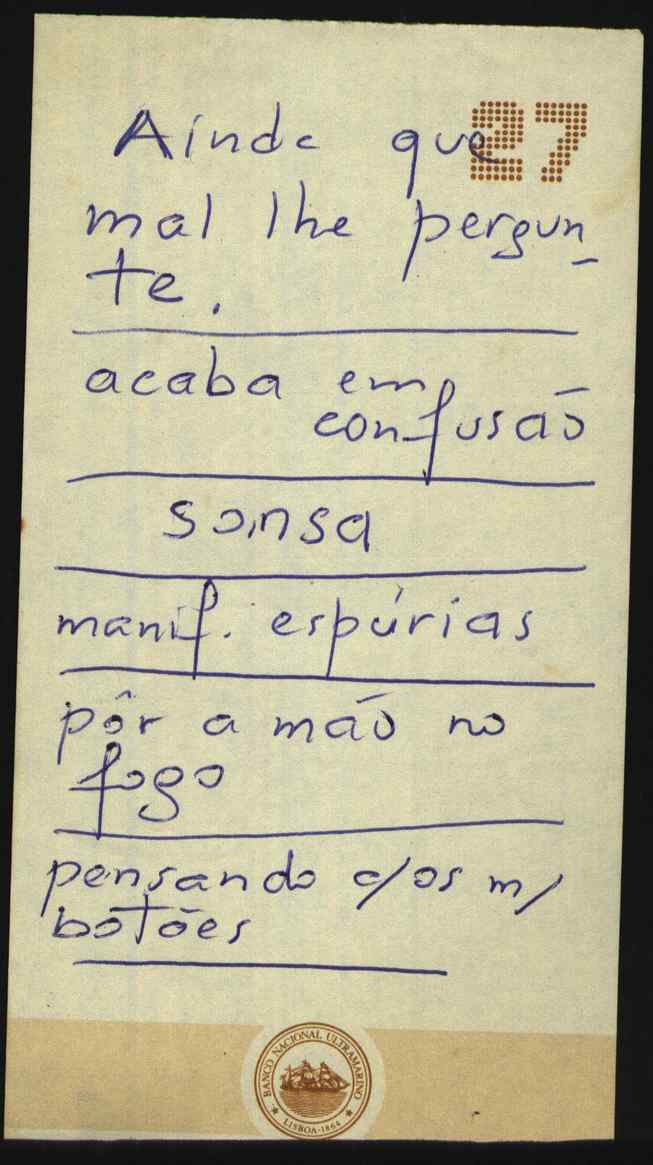 27
Ainda que
mal lhe pergun-
te.
acaba em
confusão
sonsa
manif. espúrias
pôr a mão no
fogo
pensando c/os m/
botões
BANCO NACIONAL ULTRAMARINO
LISBOA·1864